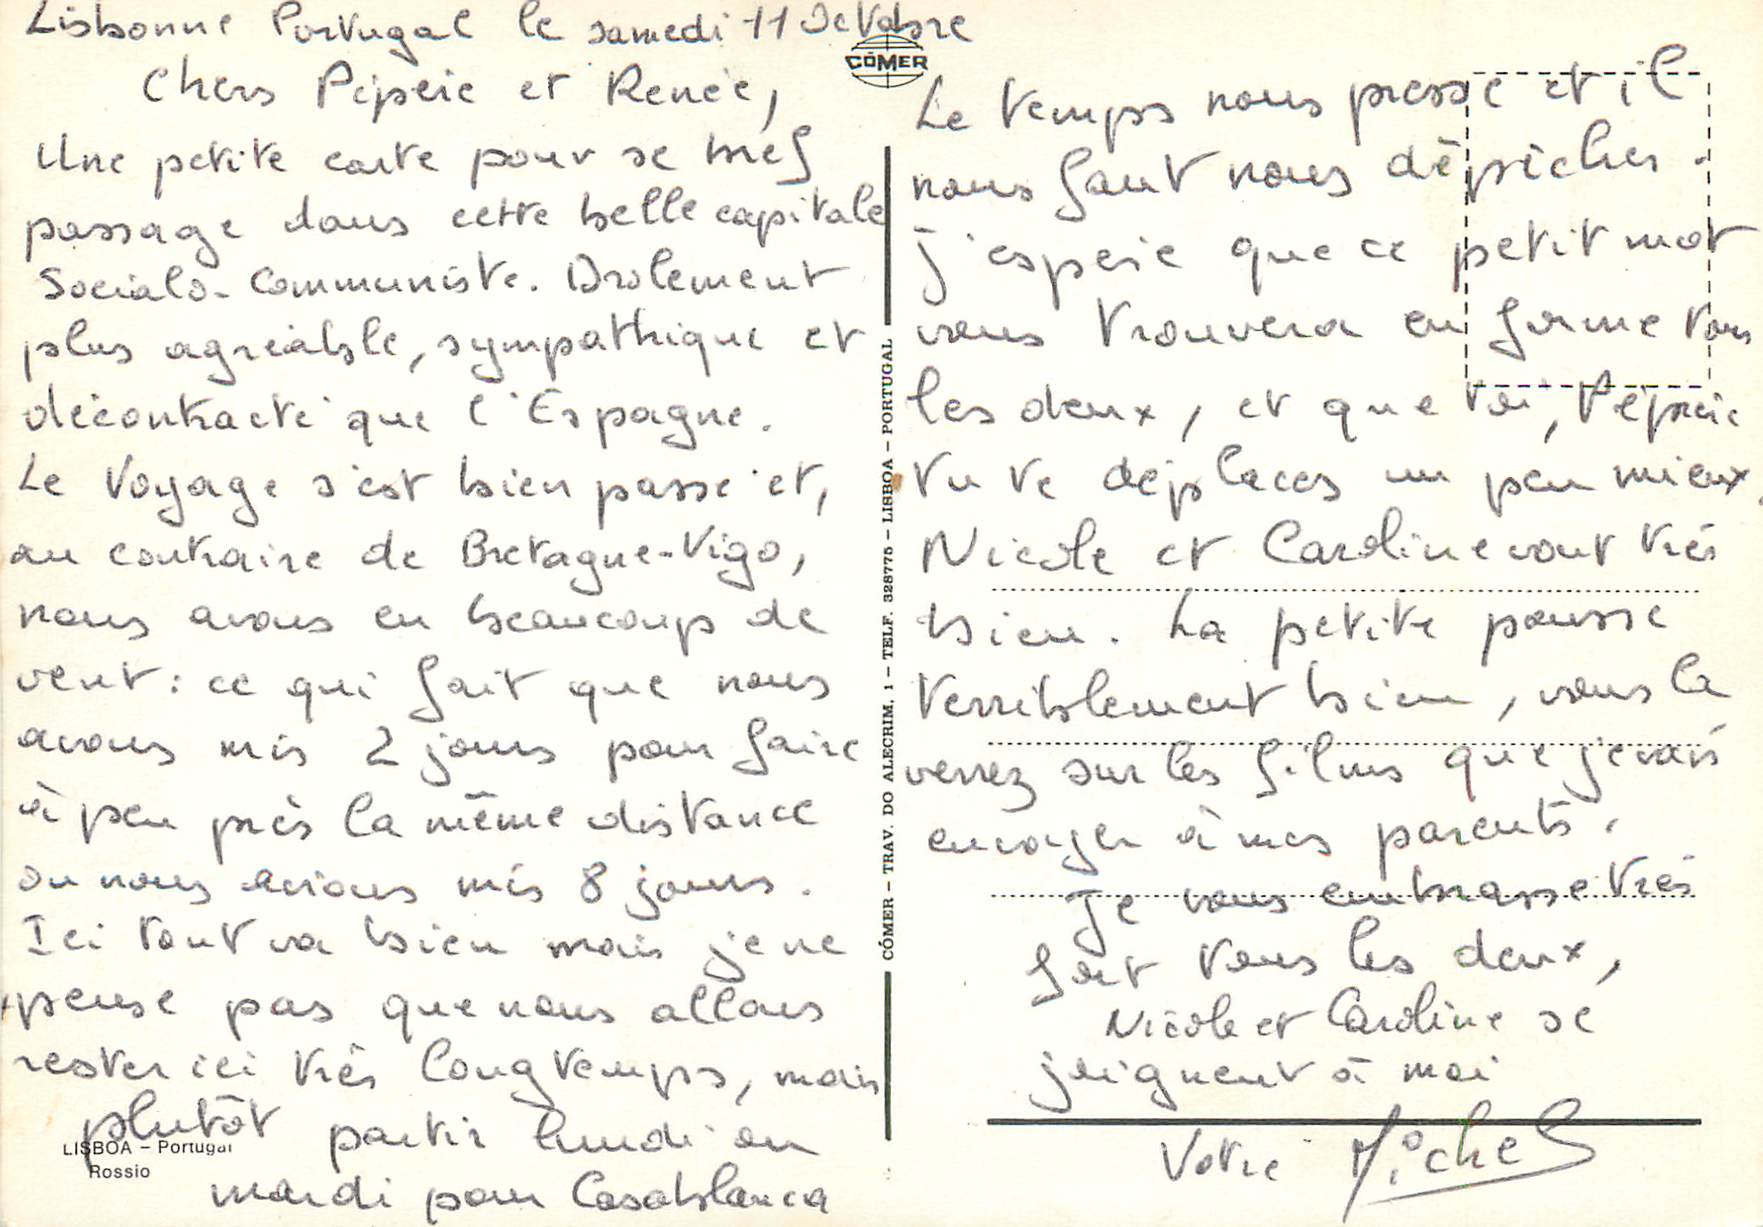 Lisbonne Portugal le samedi 11 Octobre
Chers Pépère et Renée,
Une petite carte pour se bref
passage dans cette belle capitale
Socialo-Communiste. Drolement
plus agréable, sympathique et
décontracté que l'Espagne.
Le Voyage s'est bien passé et,
au contraire de Bretagne-Vigo,
nous avons eu beaucoup de
vent : ce qui fait que nous
avons mis 2 jours pour faire
à peu près la même distance
ou nous avions mis 8 jours.
Ici tout va bien mais je ne
pense pas que nous allons
rester ici très longtemps, mais
plutôt partir lundi ou
mardi pour Casablanca
LISBOA – Portugal
Rossio
CÓMER
CÓMER – TRAV. DO ALECRIM, 1 – TELF. 328775 – LISBOA – PORTUGAL
Le temps nous presse et il
nous faut nous dépêcher.
J'espère que ce petit mot
vous trouvera en forme tous
les deux, et que toi, Pépère
tu te déplaces un peu mieux,
Nicole et Caroline vont très
bien. La petite pousse
terriblement bien, vous la
verrez sur les films que je vais
envoyer à mes parents.
Je vous embrasse très
fort tous les deux,
Nicole et Caroline se
joignent à moi
Votre Michel